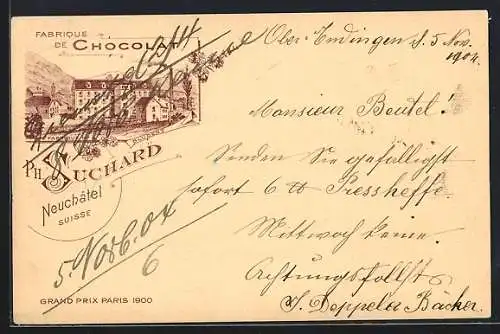 FABRIQUE
DE CHOCOLAT
PH. SUCHARD
Neuchâtel
SUISSE
5. Novb. 04
6
GRAND PRIX PARIS 1900
Ober-Endingen d. 5 Nov.
1904.
Monsieur Beutel!
Senden Sie gefälligst
sofort 6 ℔ Presshefe.
Mittwoch keine.
Achtungsvollst
J. Doppeler Bäcker.